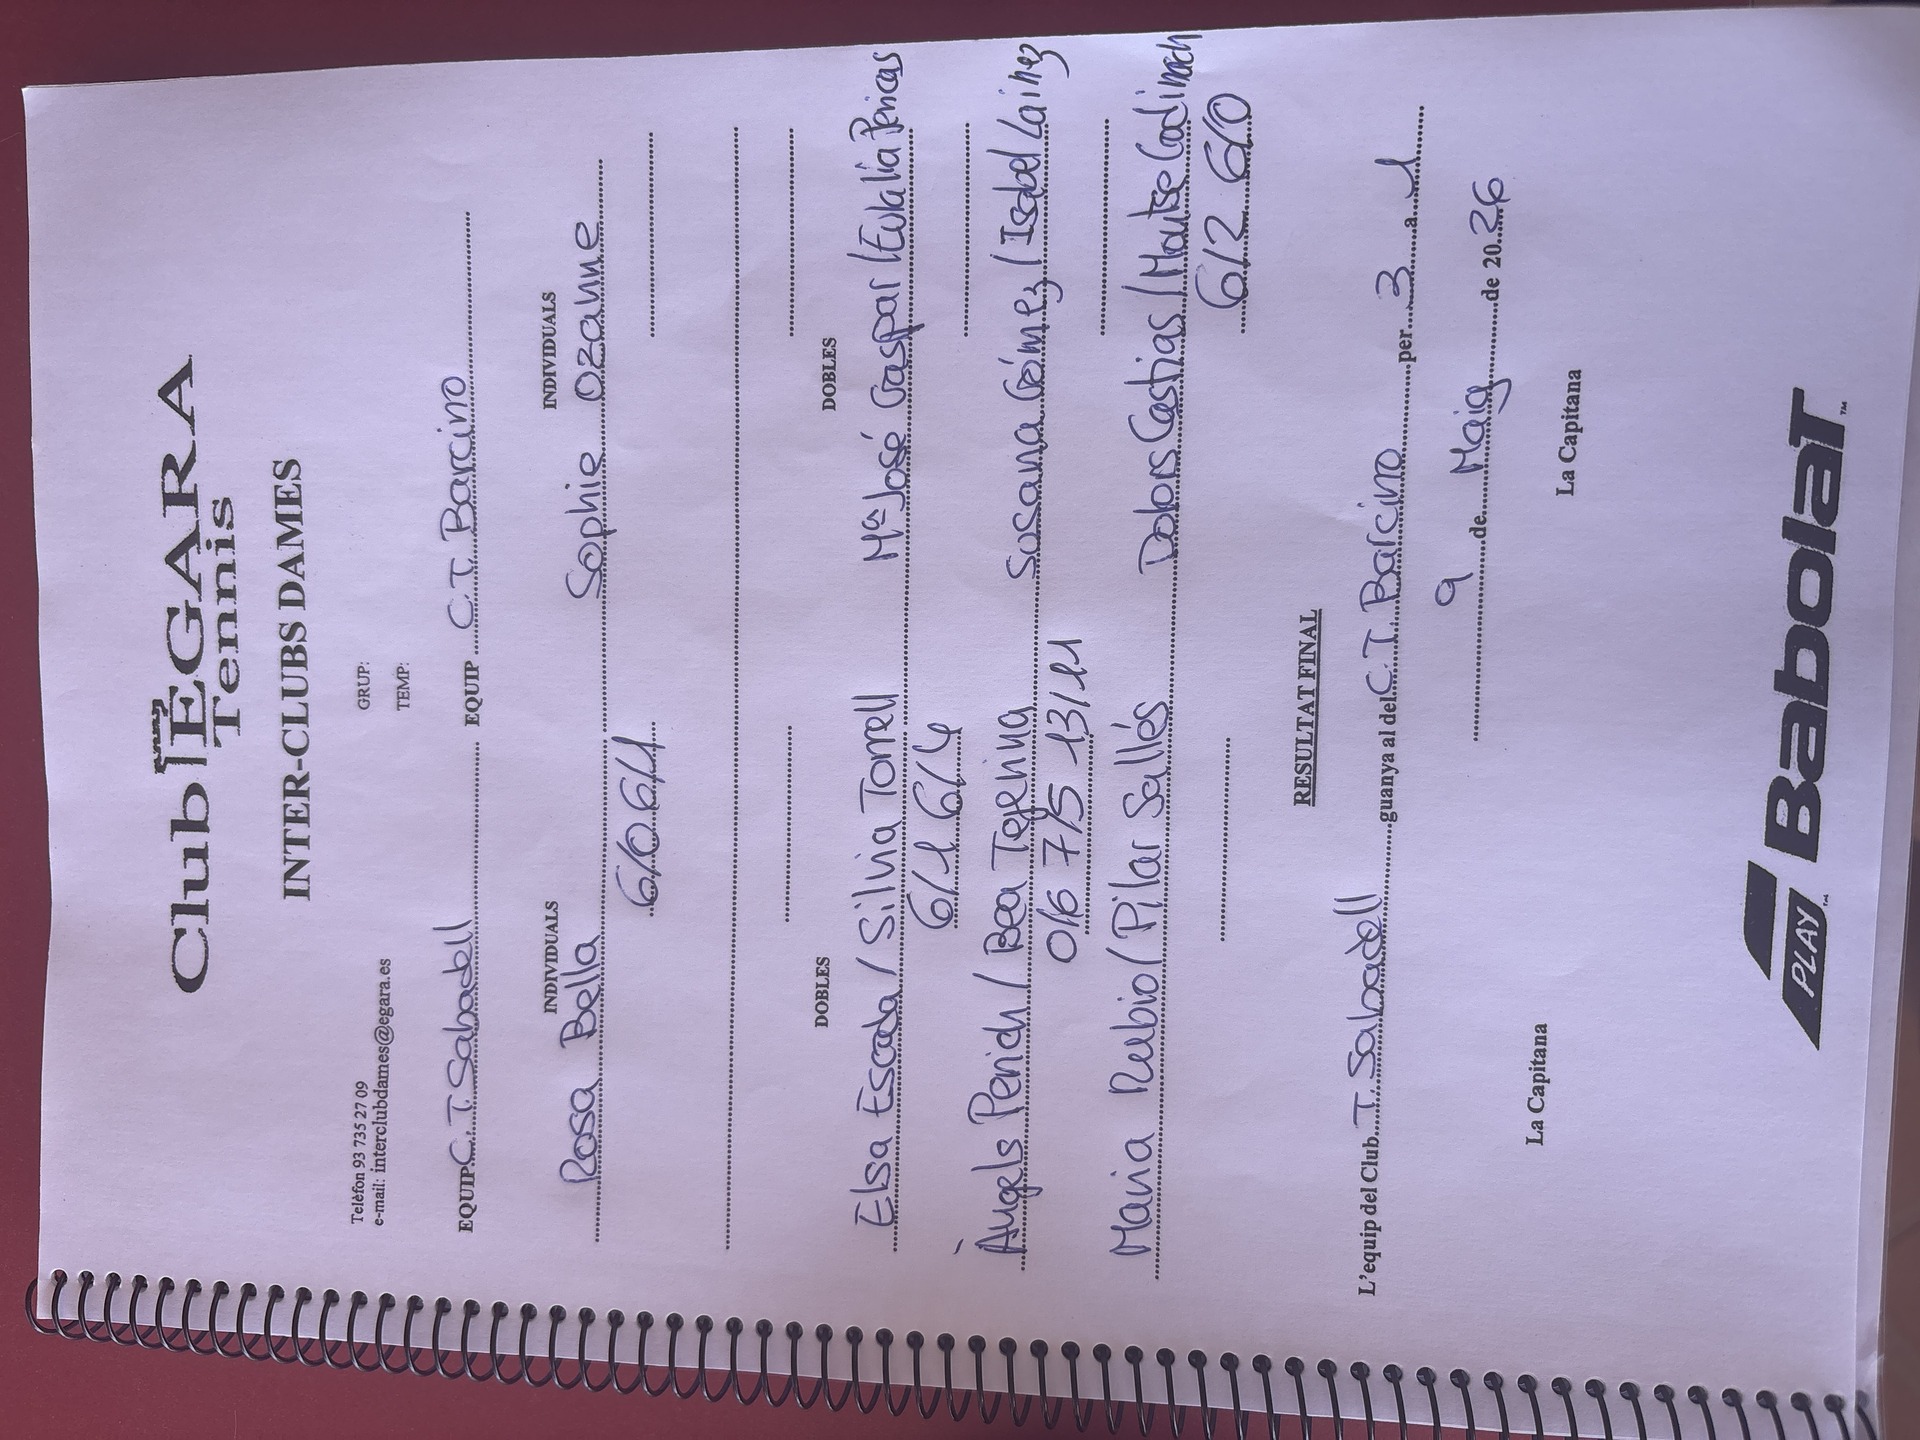 Club EGARA
Tennis
INTER-CLUBS DAMES
Telèfon 93 735 27 09 GRUP:
e-mail: interclubdames@egara.es TEMP:
EQUIP C.T. Sabadell EQUIP C.T. Barcino
INDIVIDUALS INDIVIDUALS
Rosa Bella Sophie Ozanne
6/0 6/1
DOBLES DOBLES
Elsa Escoda / Silvia Torrell Mª José Gaspar / Eulalia Pericas
6/1 6/4
Àngels Perich / Bea Tejerina Susana Gómez / Isabel Lainez
0/6 7/5 13/11
Maria Rubio / Pilar Sallés Dolors Castias / Montse Codinach
6/2 6/0
RESULTAT FINAL
L'equip del Club T. Sabadell guanya al del C.T. Barcino per 3 a 1
9 de Maig de 2026
La Capitana La Capitana
PLAY Babolat